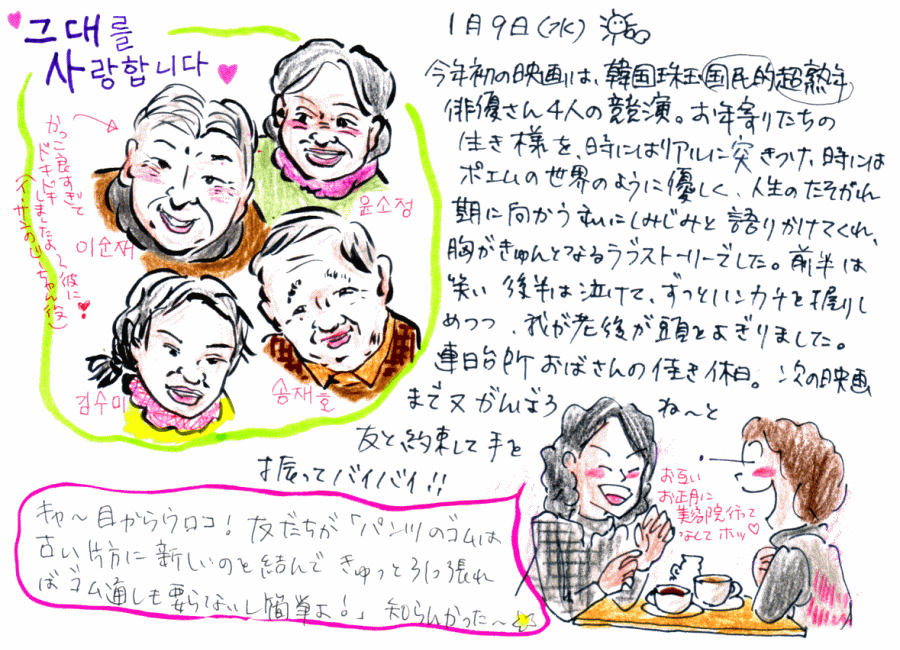 그대를
사랑합니다
かっこ良すぎて
ドキドキ
しましたよ〜彼に
이순재
윤소정
김수미
송재호
1月9日(水)
今年初の映画は、韓国珠玉国民的超熟年
俳優さん4人の競演。お年寄りたちの
生き様を、時にはリアルに突きつけ、時には
ポエムの世界のように優しく、人生のたそがれ
期に向かう私にしみじみと語りかけてくれ、
胸がきゅんとなるラブストーリーでした。前半は
笑い後半は泣けて、ずっとハンカチを握りし
めつつ、我が老後が頭をよぎりました。
連日台所おばさんの佳き休日。次の映画
まで又がんばろ ね〜と
友と約束して手を
振ってバイバイ!!
お互い
お正月に
美容院行って
なくてホッ♡
キャ〜目からウロコ!友だちが「パンツのゴムは
古い片方に新しいのを結んできゅっと引っ張れ
ばゴム通しも要らないし簡単よ!」知らんかった〜